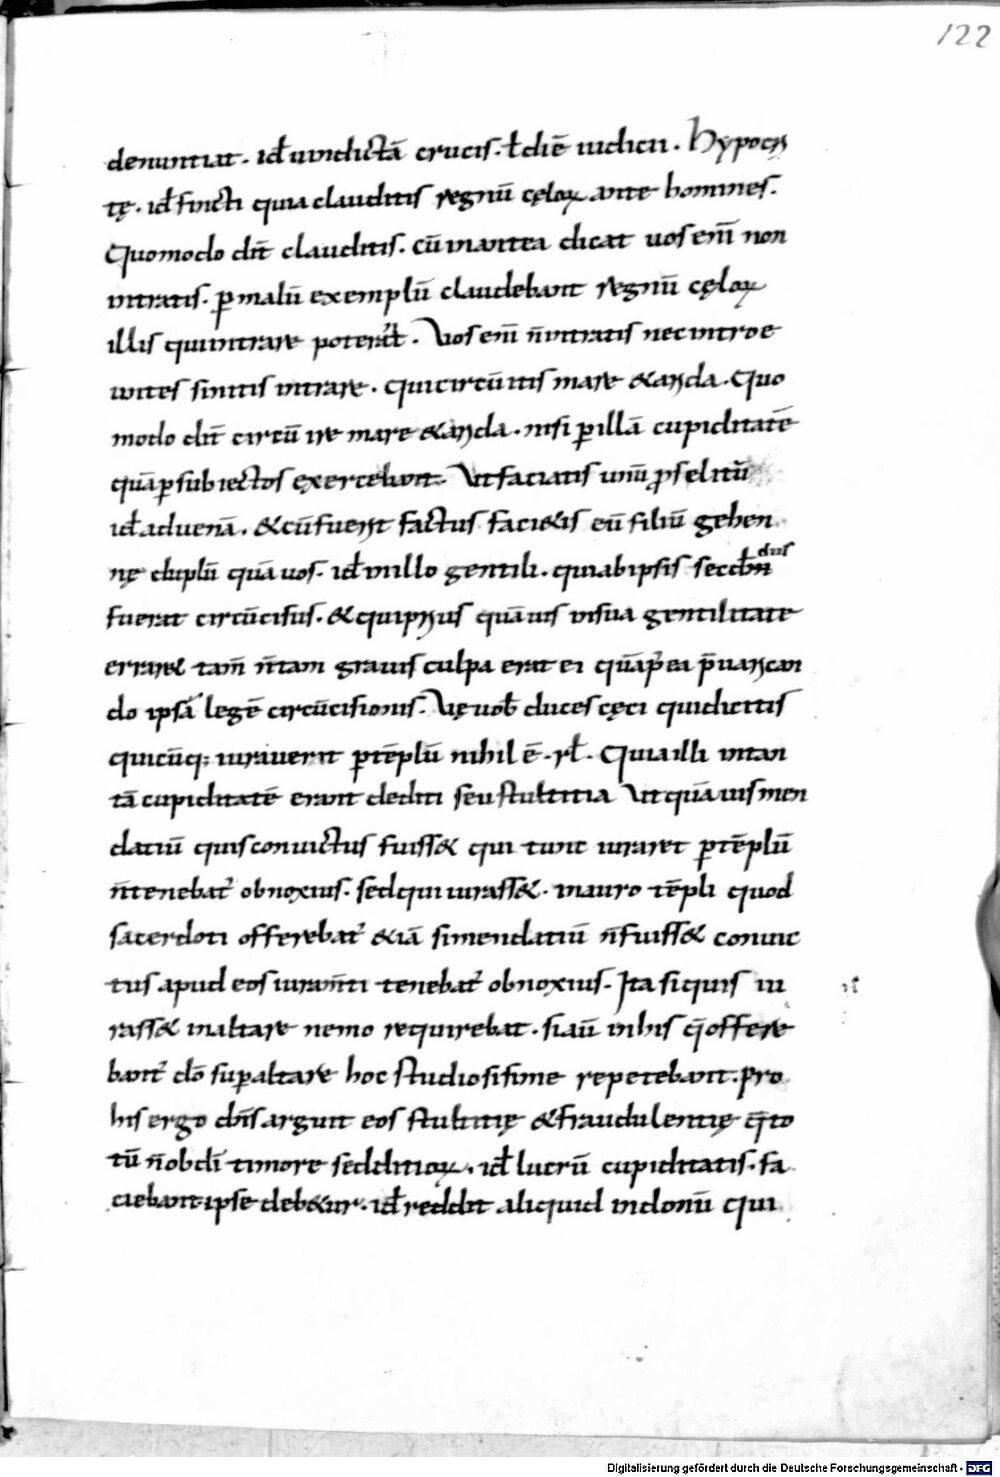 122
denuntiat. id̄ uindictā crucis. t̄ diē iudicii. Hypocri
tę. id̄ sincti quia clauditis regnū cęloꝝ ante homines.
Quomodo dn̄t clauditis. cū inantea dicat uos eni̅ non
intratis. ꝑ malū exemplū claudebant regnū cęloꝝ
illis qui intrare poterāt. Vos eni̅ n̄ intratis nec introe
untes sinitis intrare. qui circūitis mare & arida. Quo
modo dn̄t circūire mare & arida. nisi ꝑ illā cupiditatē
quā ꝑ subiectos exercebant. Vt faciatis unū ꝓselitū
id̄ aduenā. & cū fuerit factus faci&is eū filiū gehen
nę duplū quā uos. id̄ in illo gentili. qui ab ipsis
fuerat circūcisus. & qui prius quāuis in sua gentilitate
errar& tam̄ n̄ tam grauis culpa erat ei quā p̄ ea p̄uarican
do ipsā legē circūcisionis. Vę uob̄ duces cęci qui dicitis
quicūq; iurauerit ꝑ tēplū nihil ē. rł. Quia illi in tan
tā cupiditatē erant dediti seu stultitia Vt quāuis men
daciū quis conuictus fuiss& qui tunc iuraret ꝑ tēplū
n̄ tenebat᷑ obnoxius. sed qui iurass&. in auro tēpli quod
sacerdoti offerebat᷑ &iā si mendatiū n̄ fuiss& conuic
tus apud eos iuram̄ti tenebat᷑ obnoxius. Ita siquis iu
rass& in altare nemo requirebat. si aū in his q̄ offere
bant᷑ dō sup altare hoc studiosisime repetebant. pro
his ergo dn̄s arguit eos stultitię & fraudulentię q̄ to
tū n̄ ob dī timore sed ditioꝝ. id̄ lucrū cupiditatis. fa
ciebant ipse deb&ur. id̄ reddit aliquid in donū qui
Digitalisierung gefördert durch die Deutsche Forschungsgemeinschaft - DFG